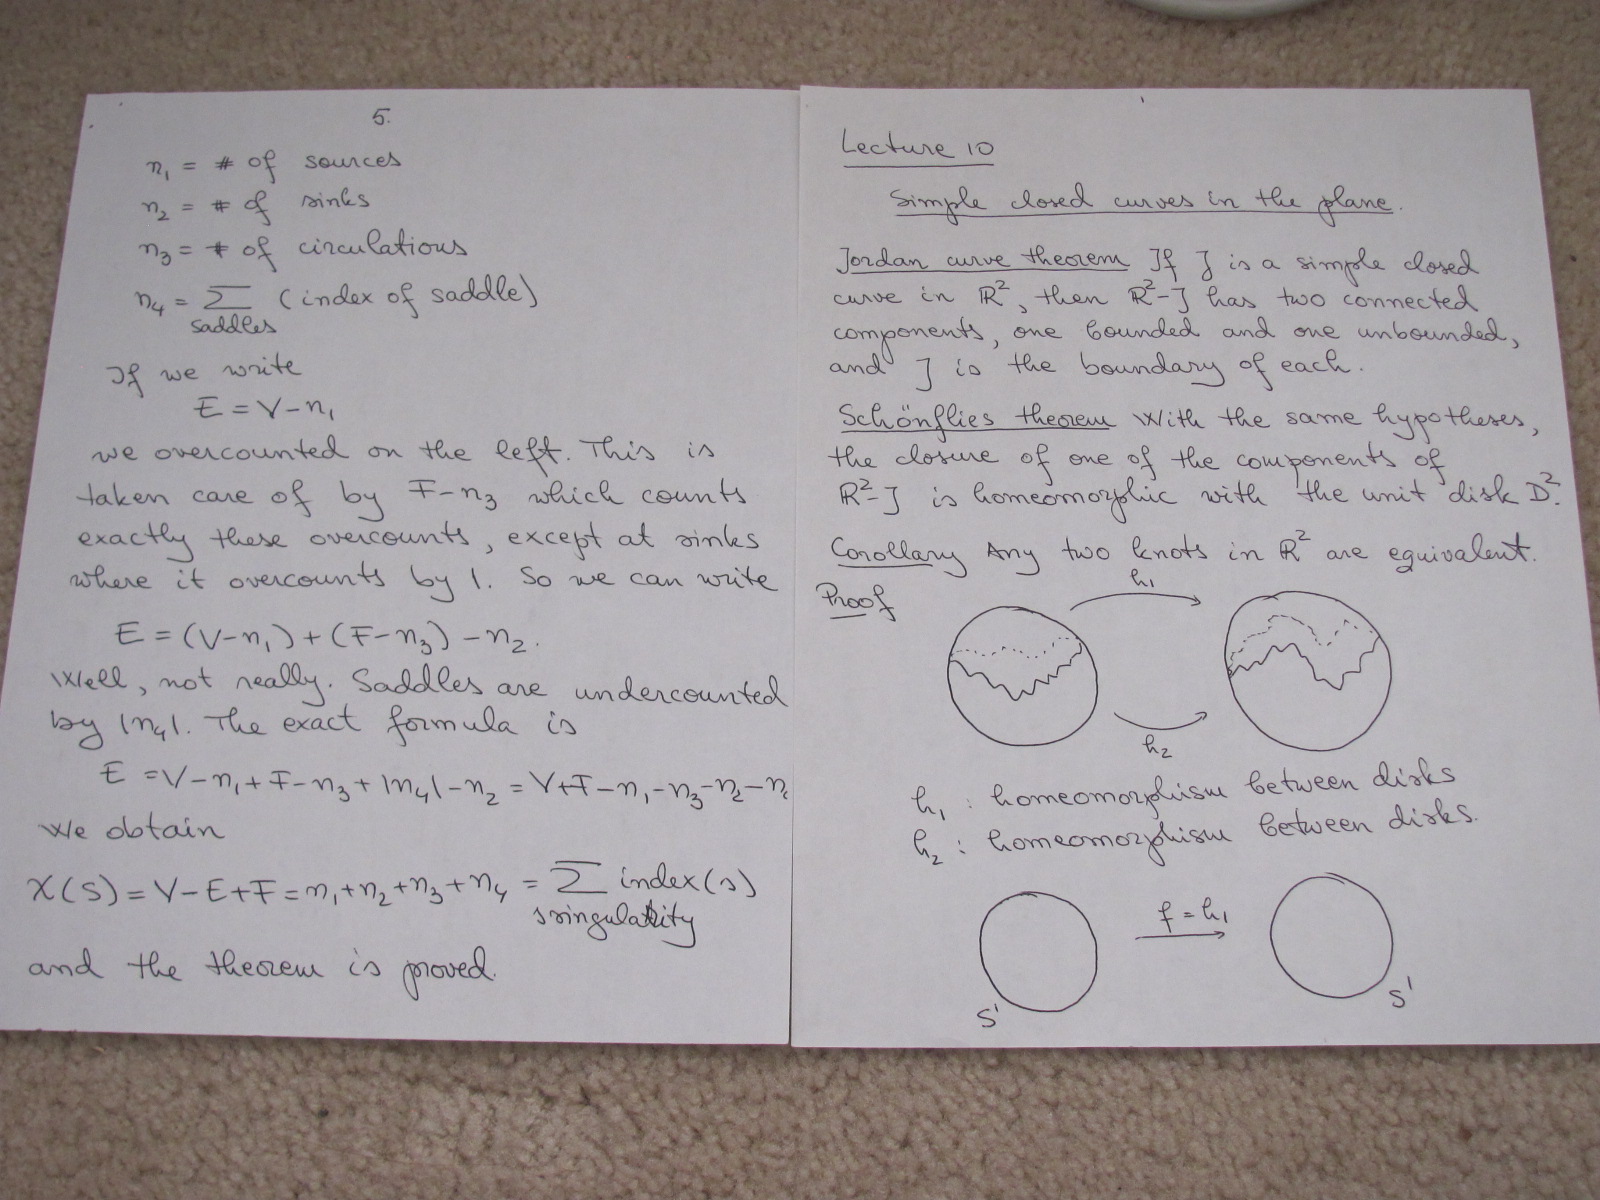 5.
n₁ = # of sources
n₂ = # of sinks
n₃ = # of circulations
n₄ = Σ (index of saddle)
saddles
If we write
E = V - n₁
we overcounted on the left. This is
taken care of by F - n₃ which counts
exactly these overcounts, except at sinks
where it overcounts by 1. So we can write
E = (V - n₁) + (F - n₃) - n₂.
Well, not really. Saddles are undercounted
by |n₄|. The exact formula is
E = V - n₁ + F - n₃ + |n₄| - n₂ = V + F - n₁ - n₃ - n₂ - n
We obtain
χ(S) = V - E + F = n₁ + n₂ + n₃ + n₄ = Σ index(s)
s singularity
and the theorem is proved.
Lecture 10
Simple closed curves in the plane.
Jordan curve theorem If J is a simple closed
curve in ℝ², then ℝ² - J has two connected
components, one bounded and one unbounded,
and J is the boundary of each.
Schönflies theorem With the same hypotheses,
the closure of one of the components of
ℝ² - J is homeomorphic with the unit disk D².
Corollary Any two knots in ℝ² are equivalent.
Proof
h₁
h₂
h₁ : homeomorphism between disks
h₂ : homeomorphism between disks.
f = h₁
S¹
S¹